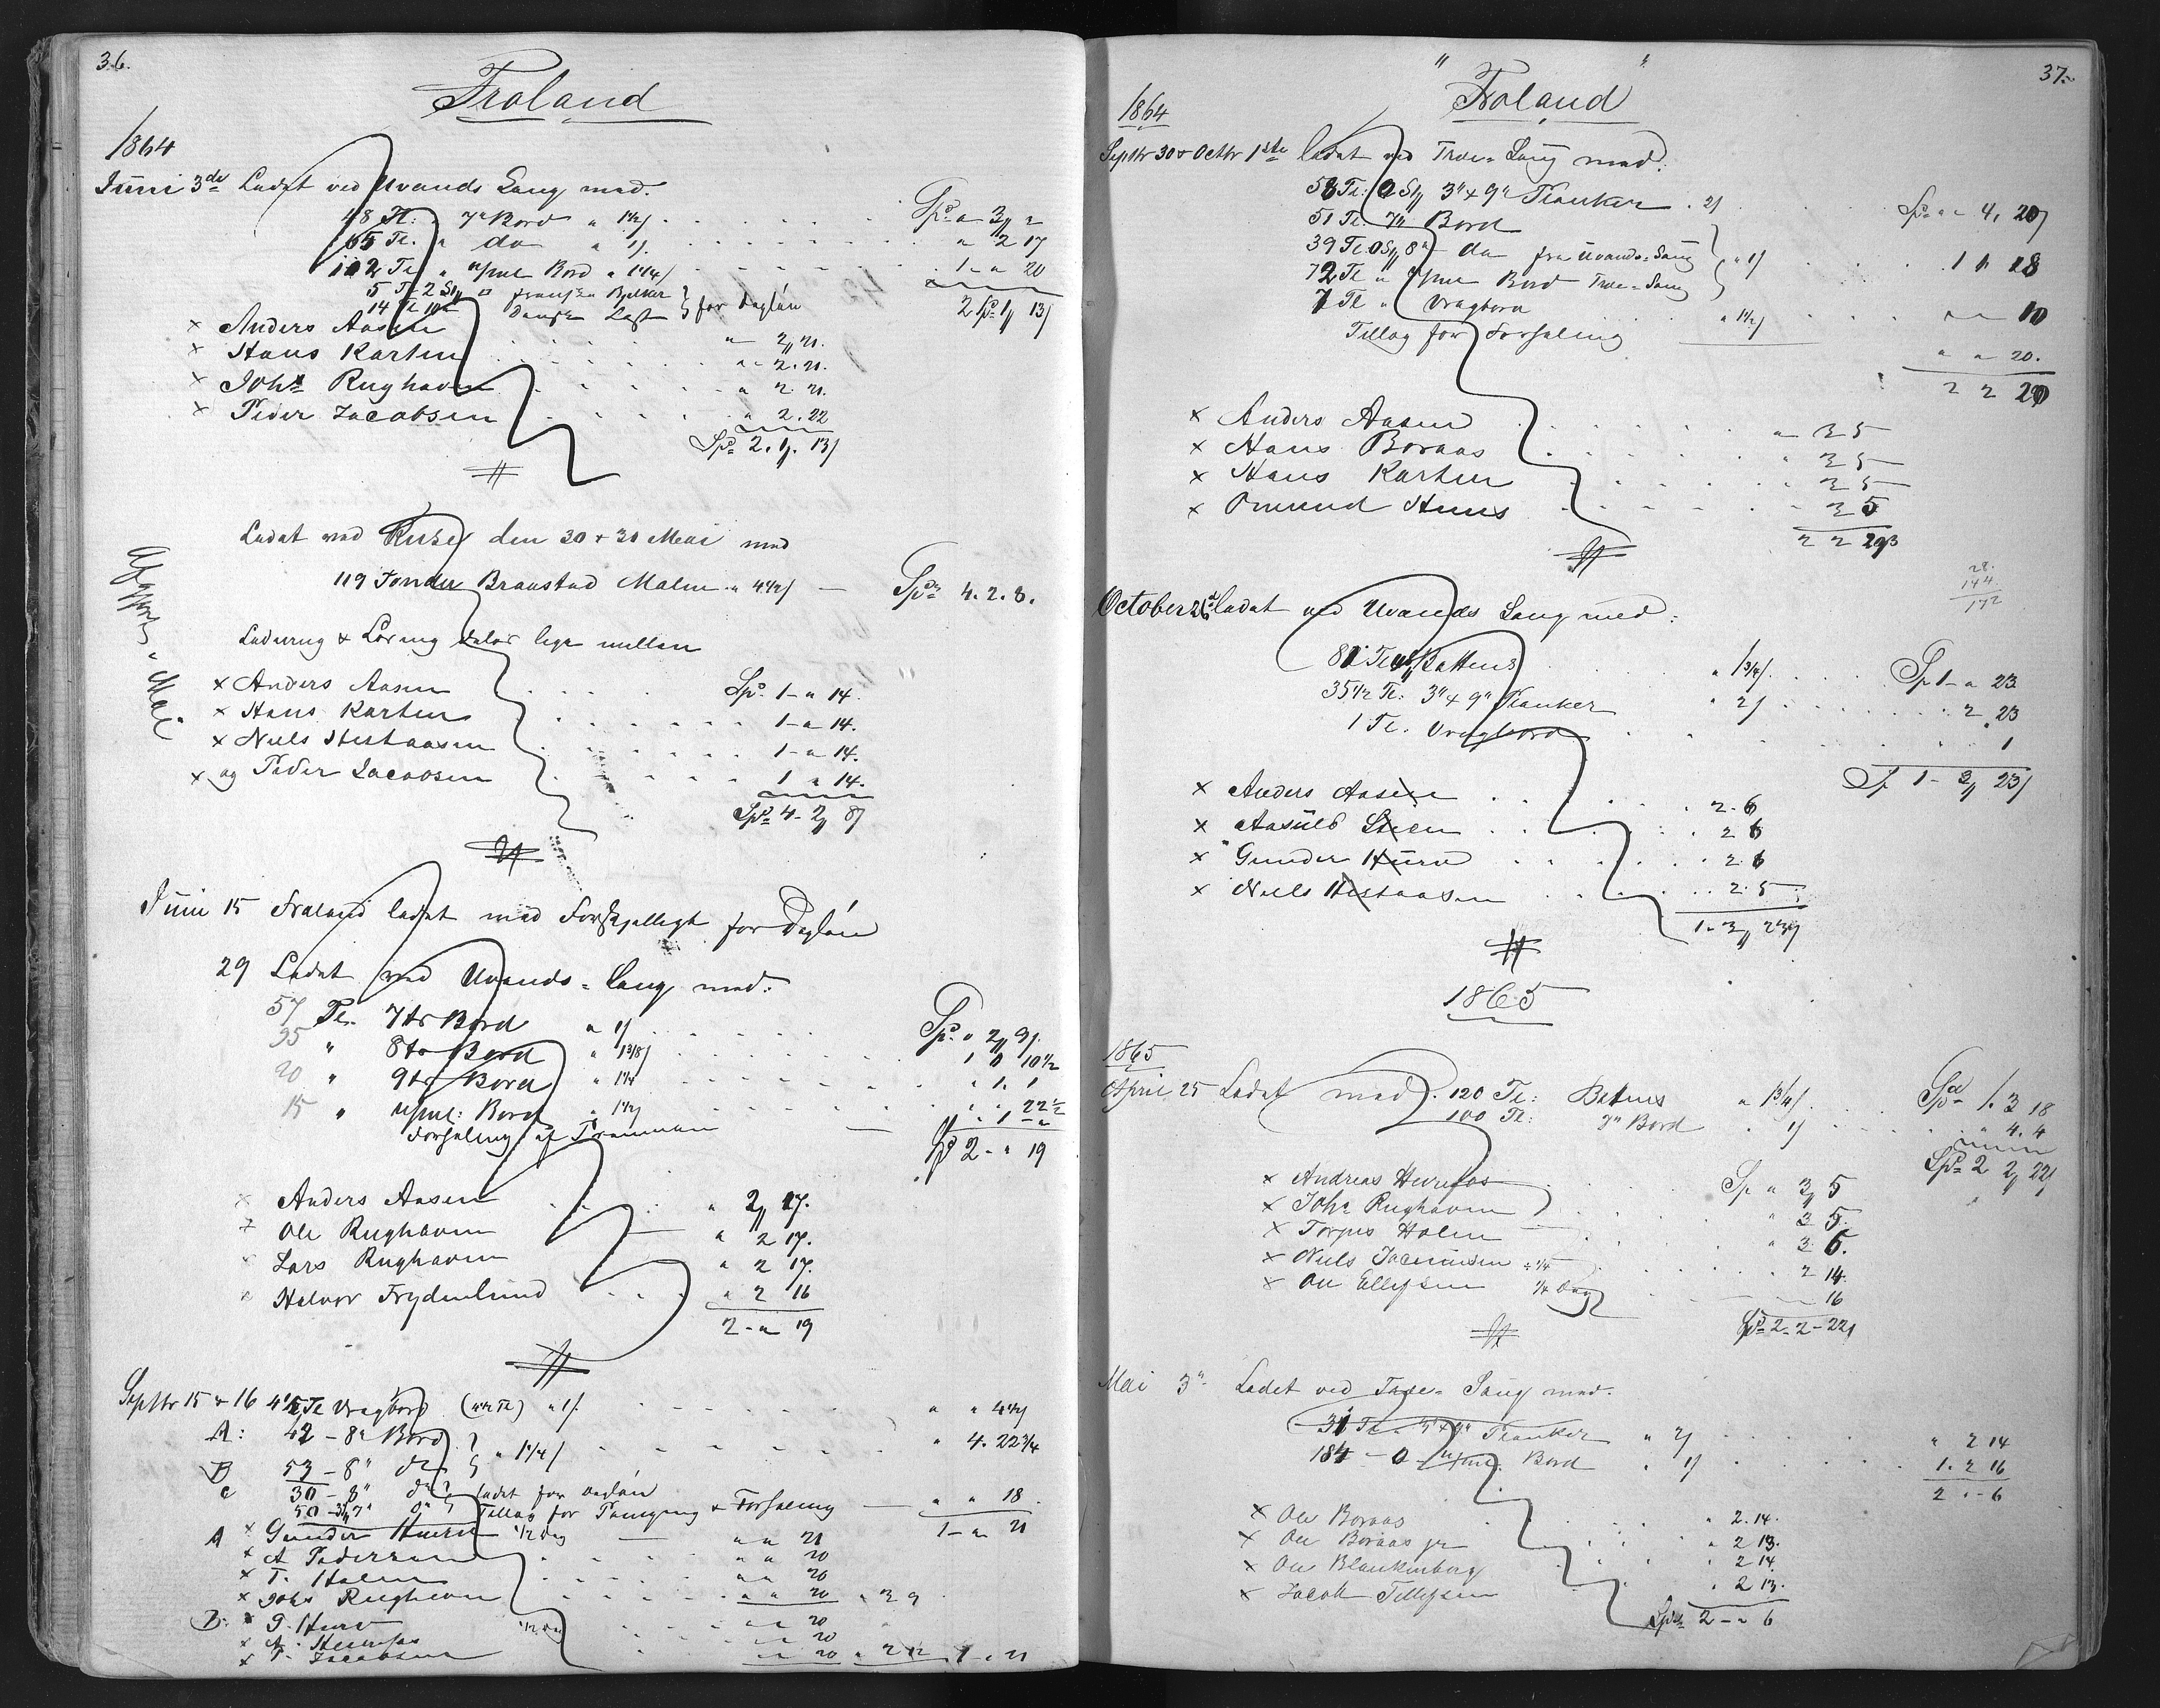 36.
Froland
1864
Juni 3de Ladet ved Uvands Saug med.
48 Tl: " 7" Bord a 1½/ Spd " 3 "
65 Tl. " do " 1/. " 2 17
102 Tl " Bord a 1¼/ 1 - " 20
5 Tl 2 St Bjelker
14 Tl Last } for Dagløn 2 Spd 1 13/
x Anders Aasen " 2 21.
x Hans Karten " 2. 21.
x Johs Rughaven " 2. 21.
x Peder Jacobsen " 2. 22
Spd 2. 1. 13/
Ladet ved den 30 & 31 Mai med
119 Tonder Braastad Malm a 4½/ — Spd 4. 2. 8.
Ladning & Losning deles lige mellem
x Anders Aasen Spd. 1 - " 14.
x Hans Karten 1 - " 14.
x Niels Hestaasen 1 - " 14.
x og Peder Jacobsen 1 " 14.
Spd 4 - 2 8/
Mai.
Juni 15 Froland ladet med Forskjelligt for Dagløn
29 Ladet ved Uvands = Saug med:
57 Tl. 7tr Bord a 1/ Spd. " 2 9/.
95 " 8tr Bord " 1⅜/ 1 0 10½
20 " 9tr Bord " 1¼ " 1. 1
15 " Bord " 1½/ " " 22½
Forhaling af Prammen — " 1 - "
Spd 2 - " 19
x Anders Aasen " 2 17.
x Ole Rughaven " 2 17.
x Lars Rughaven " 2 17.
x Halvor Frydenlund " 2 16
2 - " 19
Septbr 15 & 16 Tl Vragbord a 1/. " " 4½/
A: 42 - 8" Bord
B 53 - 8" do } " 1¼/ " 4. 22¾
C 30 - 8" do ladet for Dagløn
50 - 7" do Tillæg for & Forhaling — " " 18
1 - " 21
A x Gunder Hurv ½ Dag — " " 21
x A Pedersen " " 20
x T. Holm " " 20
x Johs Rughaven " " 20 " 3 9
B: x P. Hurv ½ Dag " " 20
x A. Heurefos " " 20
x P. Jacobsen " " 20 " 2 12 1 - " 21
37.
" Froland "
1864
Septbr 30 & Octbr 1ste ladet ved Træe = Saug med:
58 Tl: 0 St 3" x 9" Planker. 2/ Spd " - 4, 20/
51 Tl. 7" Bord
39 Tl 0 St 8" do fra Uvands = Saug } " 1/ 1 1 18
72 Tl " Bord Træe = Saug
7 Tl " Vragbord " 1½/ " " 10
Tillæg for Forhaling " " 20.
2 2 20
x Anders Aasen " 3 5
x Hans Boraas " 3 5
x Hans Karten 3 5
x Omund Huus 3 5
2 2 20
28.
144
172
October 26 ladet ved Uvands Saug med:
81 Tl Battens " 1¾/. Sp 1 - " 23
35½ Tl: 3" x 9" Planker " 2/ " 2. 23
1 Tl. Vragbord " " 1
Sp 1 - 3 23/
x Anders Aasen 2. 6
x Aasuld Steen 2 6
x Gunder Hurv 2. 6
x Niels Hestaasen 2. 5
1 - 3 23/
1865
1865
April 25 Ladet med. 120 Tl: Batens a 1¾/. Spd 1. 3 18
100 Tl: 7" Bord " 1/ " 4. 4
Spd 2 2 22/
x Andreas Heurefos Sp " 3 5
x Johs Rughaven " 3 5.
x Torjus Holm " 3 6.
x Niels ÷ ¼ " 2 14.
x Ole Ellefsen ¼ Dag " - 16
Spd 2 - 2 - 22/
Mai 3" Ladet ved Træe = Saug med.
31 Tl. 3" x 9" Planker " 2/ " 2 14
184 - 0 - Bord " 1/ 1. 2 16
2 " - 6
x Ole Boraas " 2. 14.
x Ole Boraas jr " 2 13.
x Ole Blankenberg " 2 14.
x Jacob Tellefsen " 2 13.
Spd 2 - " 6